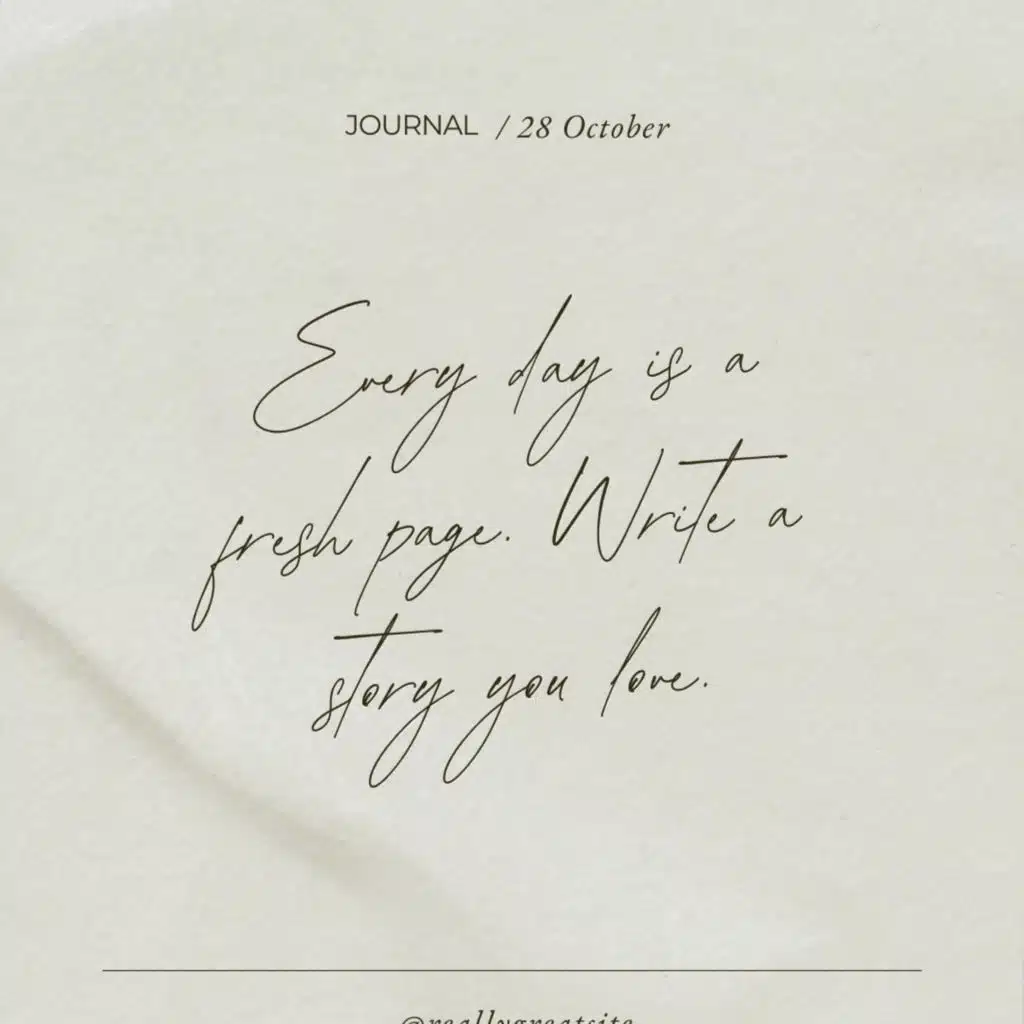 JOURNAL / 28 October
Every day is a
fresh page. Write a
story you love.
@reallygreatsite